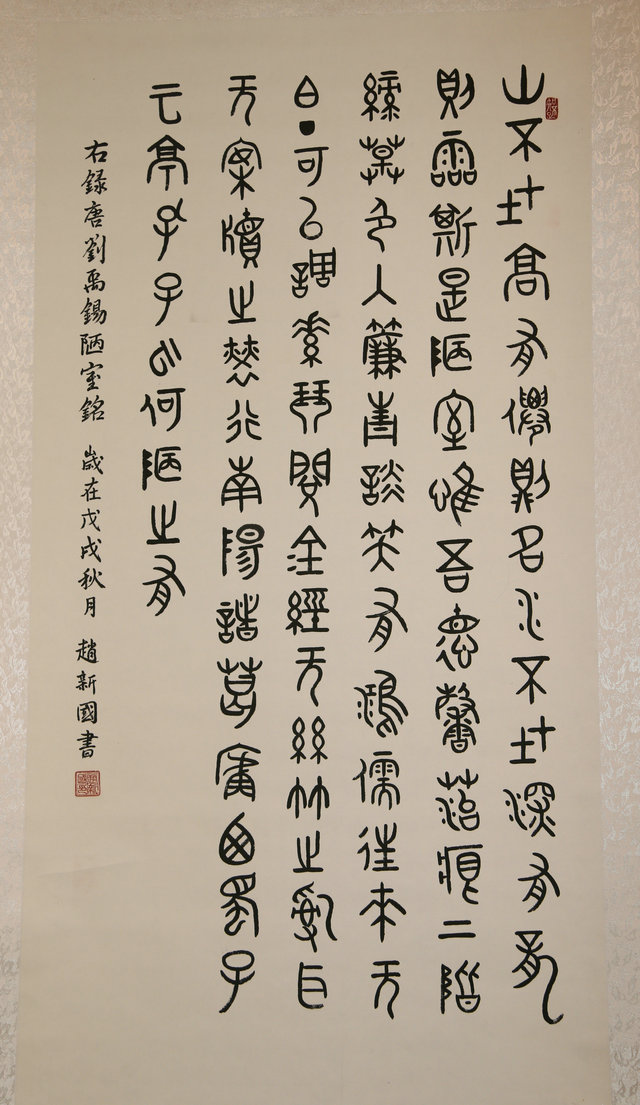 山不在高有僊則名水不在深有龍
則靈斯是陋室惟吾悳馨菭痕上階
綠草色入簾青談笑有鴻儒往來无
白丁可以調素琴閱金經无絲竹之亂耳
无案牘之勞形南陽諸葛廬西蜀子
云亭孔子云何陋之有
右録唐劉禹錫陋室銘 歲在戊戌秋月 趙新國書